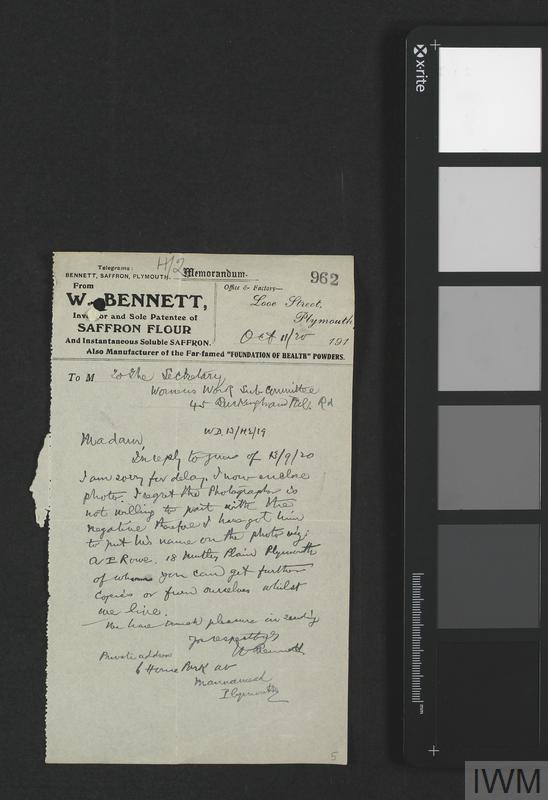 Telegrams:
BENNETT, SAFFRON, PLYMOUTH.
H/2
Memorandum.
962
From
W. BENNETT,
Inventor and Sole Patentee of
SAFFRON FLOUR
And Instantaneous Soluble SAFFRON.
Office & Factory—
Looe Street,
Plymouth,
Oct 11/20 191
Also Manufacturer of the Far-famed "FOUNDATION OF HEALTH" POWDERS.
To M To The Secketary
Womens Work Sub Committee
45 Buckingham Pals Rd
W.D. 13/H2/19
Madam,
In reply to yours of 13/9/20
I am sorry for delay, I now enclose
photo. I regret the Photographer is
not willing to part with the
negative therefore I have got him
to put his name on the photo viz;
A E Rowe. 18 Mutley Plain Plymouth
of whom you can get further
copies or from ourselves whilst
we live.
We have much pleasure in sending
Yours respectfully
W Bennett
Private address
6 Home Park av
Mannamead
Plymouth
5
x-rite
mm
IWM